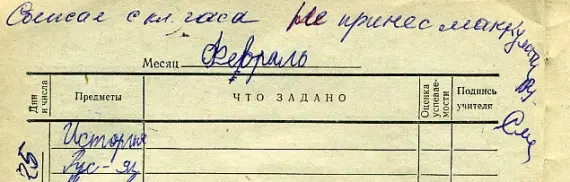 Сбежал с кл. часа Не принес макулатуру.
Месяц Февраль
Дни и числа Предметы ЧТО ЗАДАНО Оценка успеваемости Подпись учителя
История
25 Рус-яз